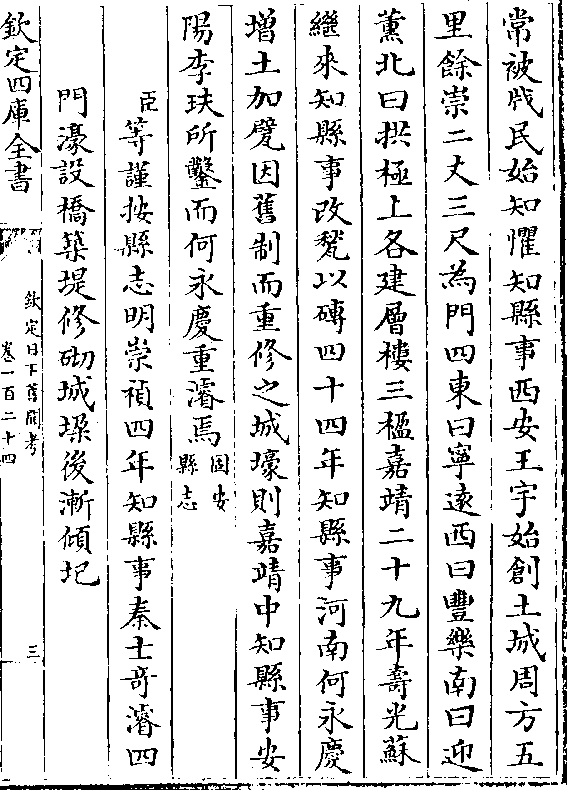 常被戕民始知懼知縣事西安王宇始創土城周方五
里餘崇二丈三尺為門四東曰寧遠西曰豐樂南曰迎
薰北曰拱極上各建層樓三楹嘉靖二十九年壽光蘇
繼來知縣事改甃以磚四十四年知縣事河南何永慶
增土加甓因舊制而重修之城壕則嘉靖中知縣事安
陽李玞所鑿而何永慶重濬焉固安縣志
臣等謹按縣志明崇禎四年知縣事秦士奇濬四
門濠設橋築堤修砌城垜後漸傾圮
欽定四庫全書
欽定日下舊聞考
卷一百二十四
三